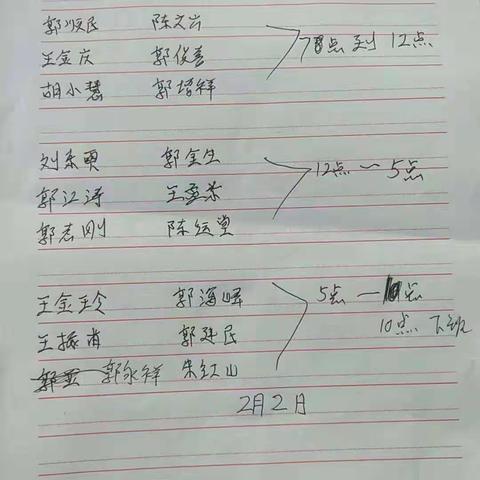 郭顺民 陈文云
7点到12点
王金庆 郭俊善
胡小慧 郭培祥
刘东 郭金生
12点一5点
郭江涛 王孟荣
郭志刚 陈运堂
王金玲 郭海峰
5点一10点
王振肖 郭建民
10点下班
郭永祥 朱红山
2月2日